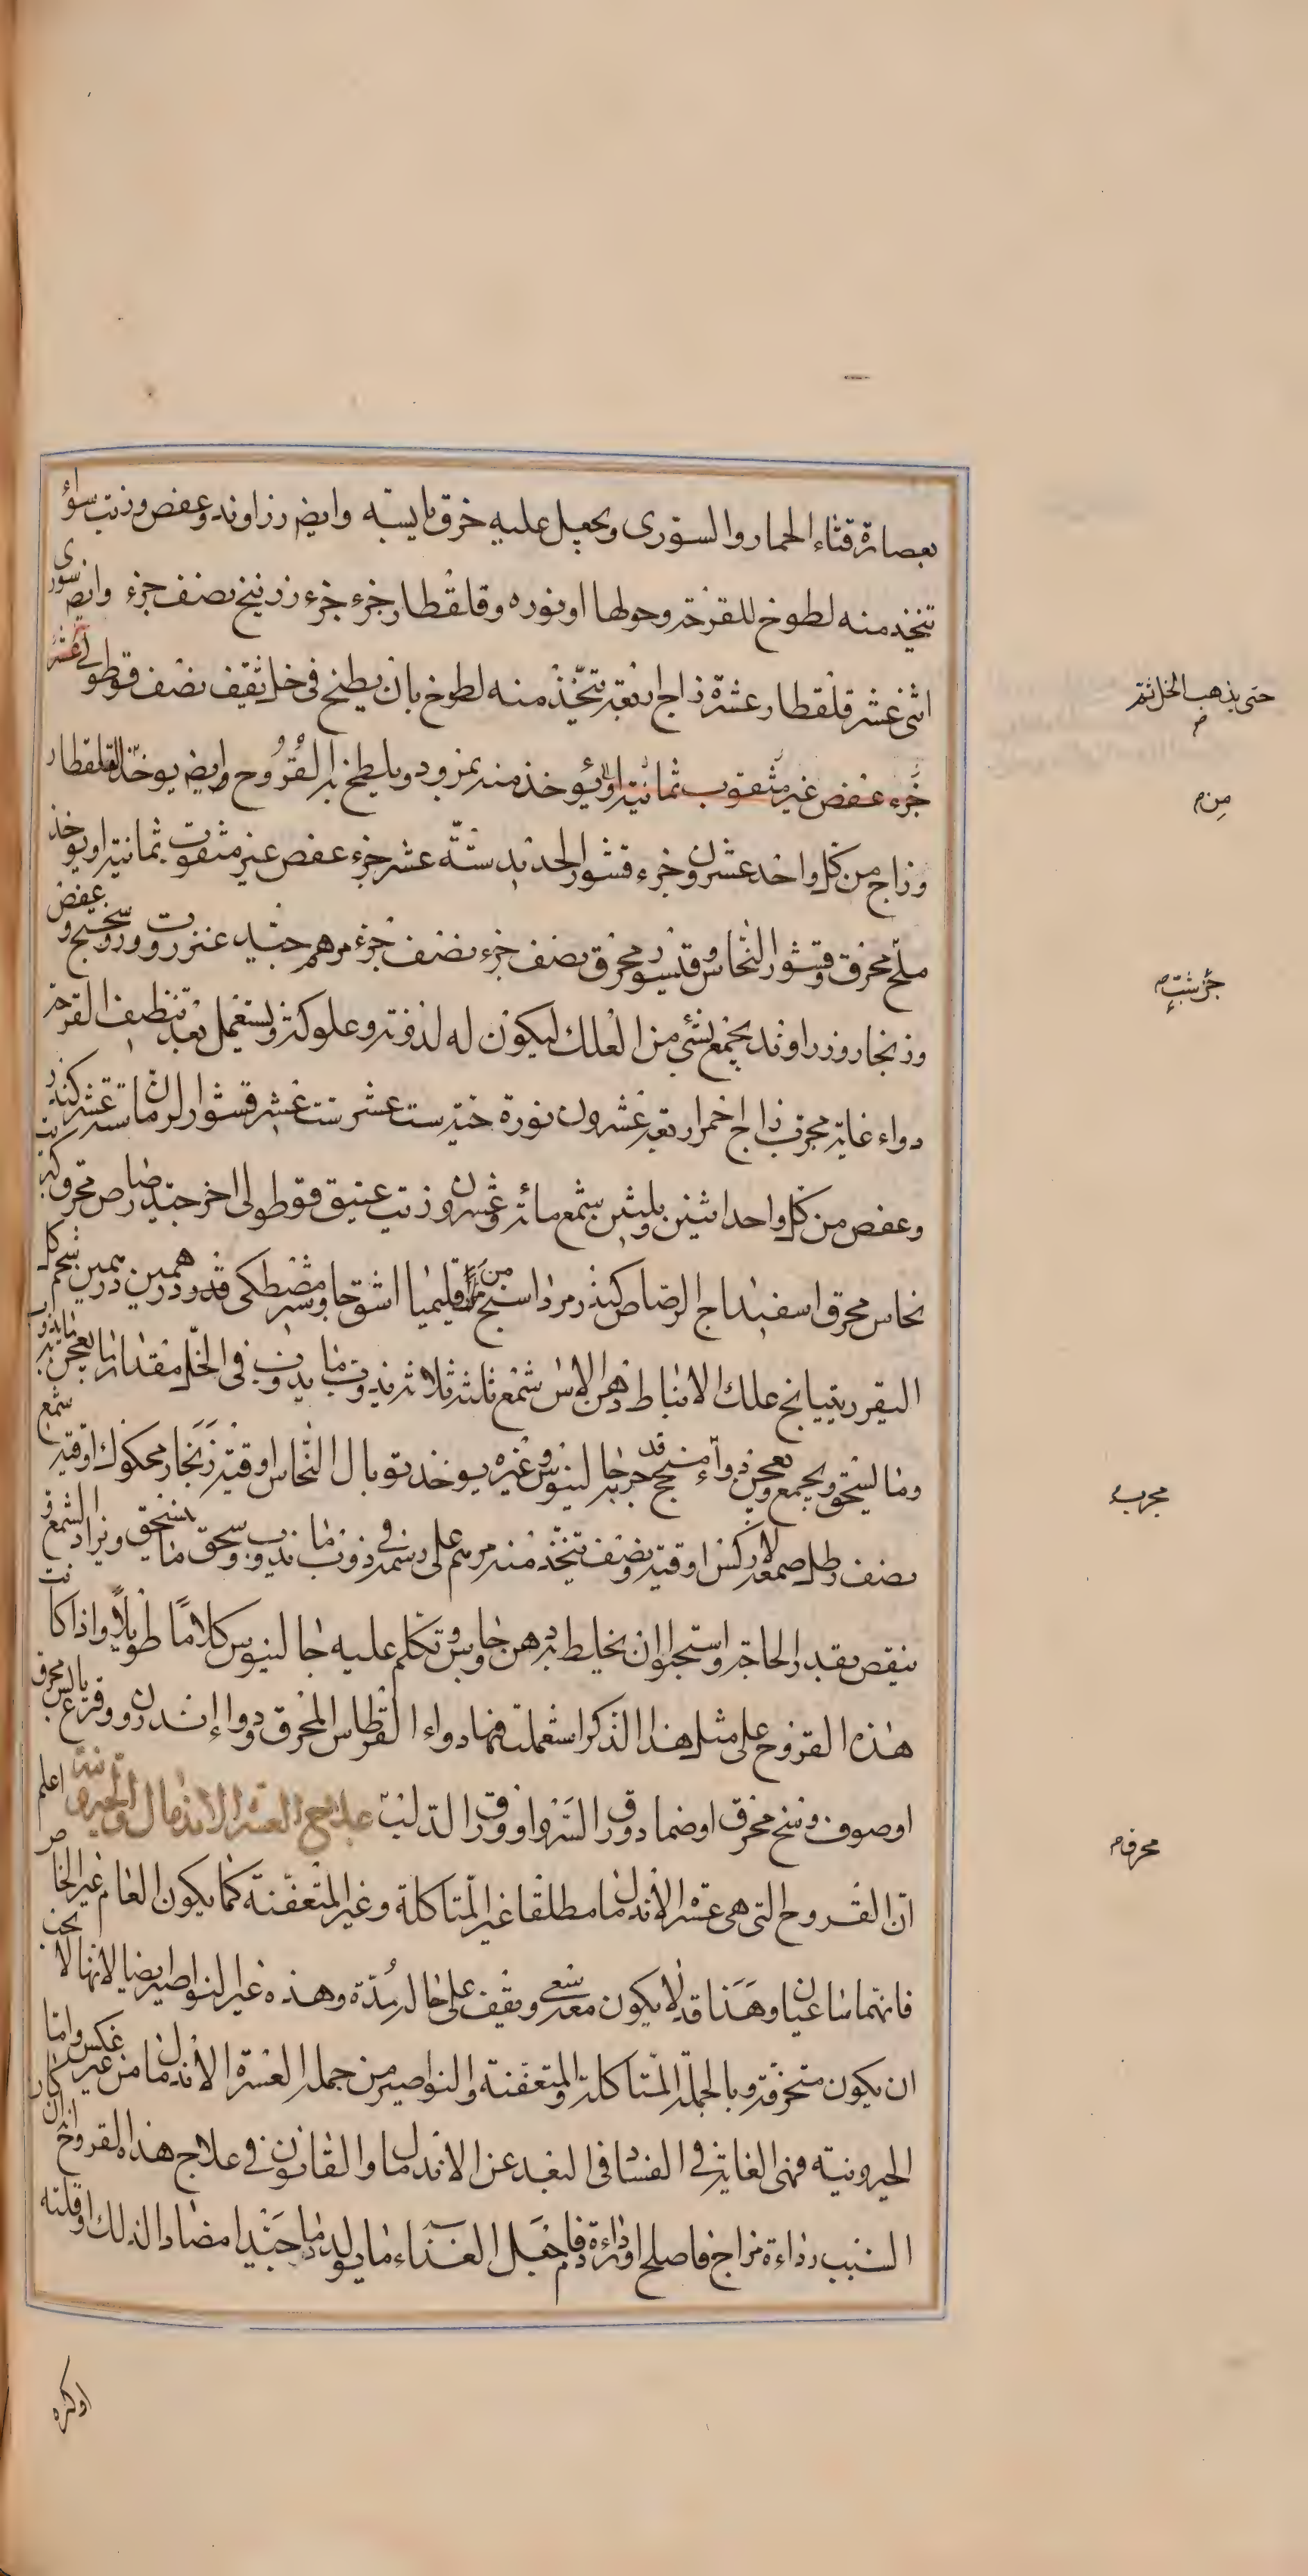 بعصارة قثاء الحمار والسوری ويجعل عليه خرق يابسة وايضر زراوند وعفص وزيت سواء
تتخذ منه لطوخ للقرحة وحولها او نوره وقلقطار جزء جزء زرنيخ نصف جزء وايضر سوری
اثنی عشر قلقطار عشرة زاج اربعة يتخذ منه لطوخ بان يطبخ فی خل ثقيف نصف قوطولی عشر
جزء عفص غير مثقوب ثمانية او يؤخذ منه بمزود ويلطخ به القروح وايضر يوخذ القلقطار
وزاج من كل واحد عشرون جزء قشور الحديد ستة عشر جزء عفص غير مثقوب ثمانية او يوخذ
ملح محرق وقشور النحاس وقيسور محرق نصف جزء نصف جزء مرهم جيد عنزروت وروسختج وعفص
وزنجار وزراوند يجمع بشیء من العلك ليكون له لدونة وعلوكة ويستعمل بعد تنظيف القرحة
دواء غاية مجرب زاج احمر اربعة عشرون نورة حية ست عشر ست عشر قشور الرمان ستة عشر كندر
وعفص من كل واحد اثنين وثلثين شمع مائة وعشرون زيت عتيق قوطولی اخر جيد رصاص محرق وكبريت
نحاس محرق اسفيداج الرصاص كندر مرداسنج من اقليميا اشق جاوشير مصطكی قدر درهمين درهمين شحم كل
البقر ريتيانج علك الانباط دهن الاس شمع ثلثة ثلاثة يذوب ما يذوب فی الخل مقدار ما يعجن به ما يذوب
وما يستحق ويجمع ويعجن دواء منجح قد جربه جالينوس وغيره يوخذ توبال النحاس اوقية زنجار محكوك اوقية شمع
نصف رطل صمغ لاركس اوقية ونصف تتخذ منه مرهم علی رسمه فی ذوب ما يذوب وسحق ما يسحق ويزاد الشمع و
ينقص بقدر الحاجة واستحبوا ان يخلط به دهن جاوس وتكلم عليه جالينوس كلاما طويلا واذا كانت
هذه القروح علی مثل هذا الذكر استعملت فيها دواء القرطاس المحرق ودواء اندرون وقرع يابس محرق
او صوف وسخ محرق او ضماد ورق السرو او ورق الدلب علاج العسر الاندمال والخيرونية اعلم
ان القروح التی هی عسر الاندمال ما مطلقا غير المتاكلة وغير المتعفنة كما يكون العام غير الخاص
فانهما ساعيان وهنا قد لا يكون معه سعی ويقف علی حاله مدة وهذه غير النواصير ايضا لانها لا يجب
ان يكون متحرقة وبالجملة المتاكلة والمتعفنة والنواصير من جملة العسرة الاندمال من غير عكس واما
الخيرونية فهی الغاية فی الفساد فی البعد عن الاندمال والقانون فی علاج هذه القروح ان كان
السبب رداءة مزاج فاصلح او رداءة دم فاجعل الغذاء ما يولد دما جيدا مضادا لذلك او قلته
حتی يذهب الخل ثم
من
جزء شب
مجرب
محرق
او كثره